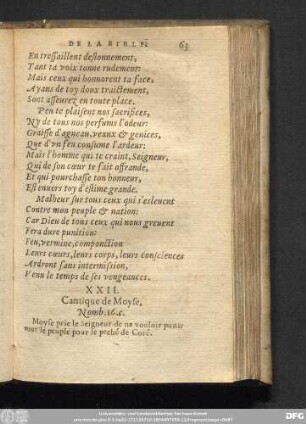 DE LA BIBLE. 63
En tressaillent d'estonnement,
Tant ta voix tonne rudement:
Mais ceux qui honnorent ta face,
Ayans de toy doux traictement,
Sont asseurez en toute place.
Peu te plaisent nos sacrifices,
Ny de tous nos perfums l'odeur:
Graisse d'agneau, veaux & genices,
Que d'vn feu consume l'ardeur:
Mais l'homme qui te craint, Seigneur,
Qui de son cœur te fait offrande,
Et qui pourchasse ton honneur,
Est enuers toy d'estime grande.
Malheur sur tous ceux qui s'esleuent
Contre mon peuple & nation:
Car Dieu de tous ceux qui nous greuent
Fera dure punition:
Feu, vermine, componction
Leurs cœurs, leurs corps, leurs consciences
Ardront sans intermission,
Venu le temps de ses vengeances.
XXII.
Cantique de Moyse,
Nomb. 16. c.
Moyse prie le Seigneur de ne vouloir punir
tout le peuple pour le peché de Coré.